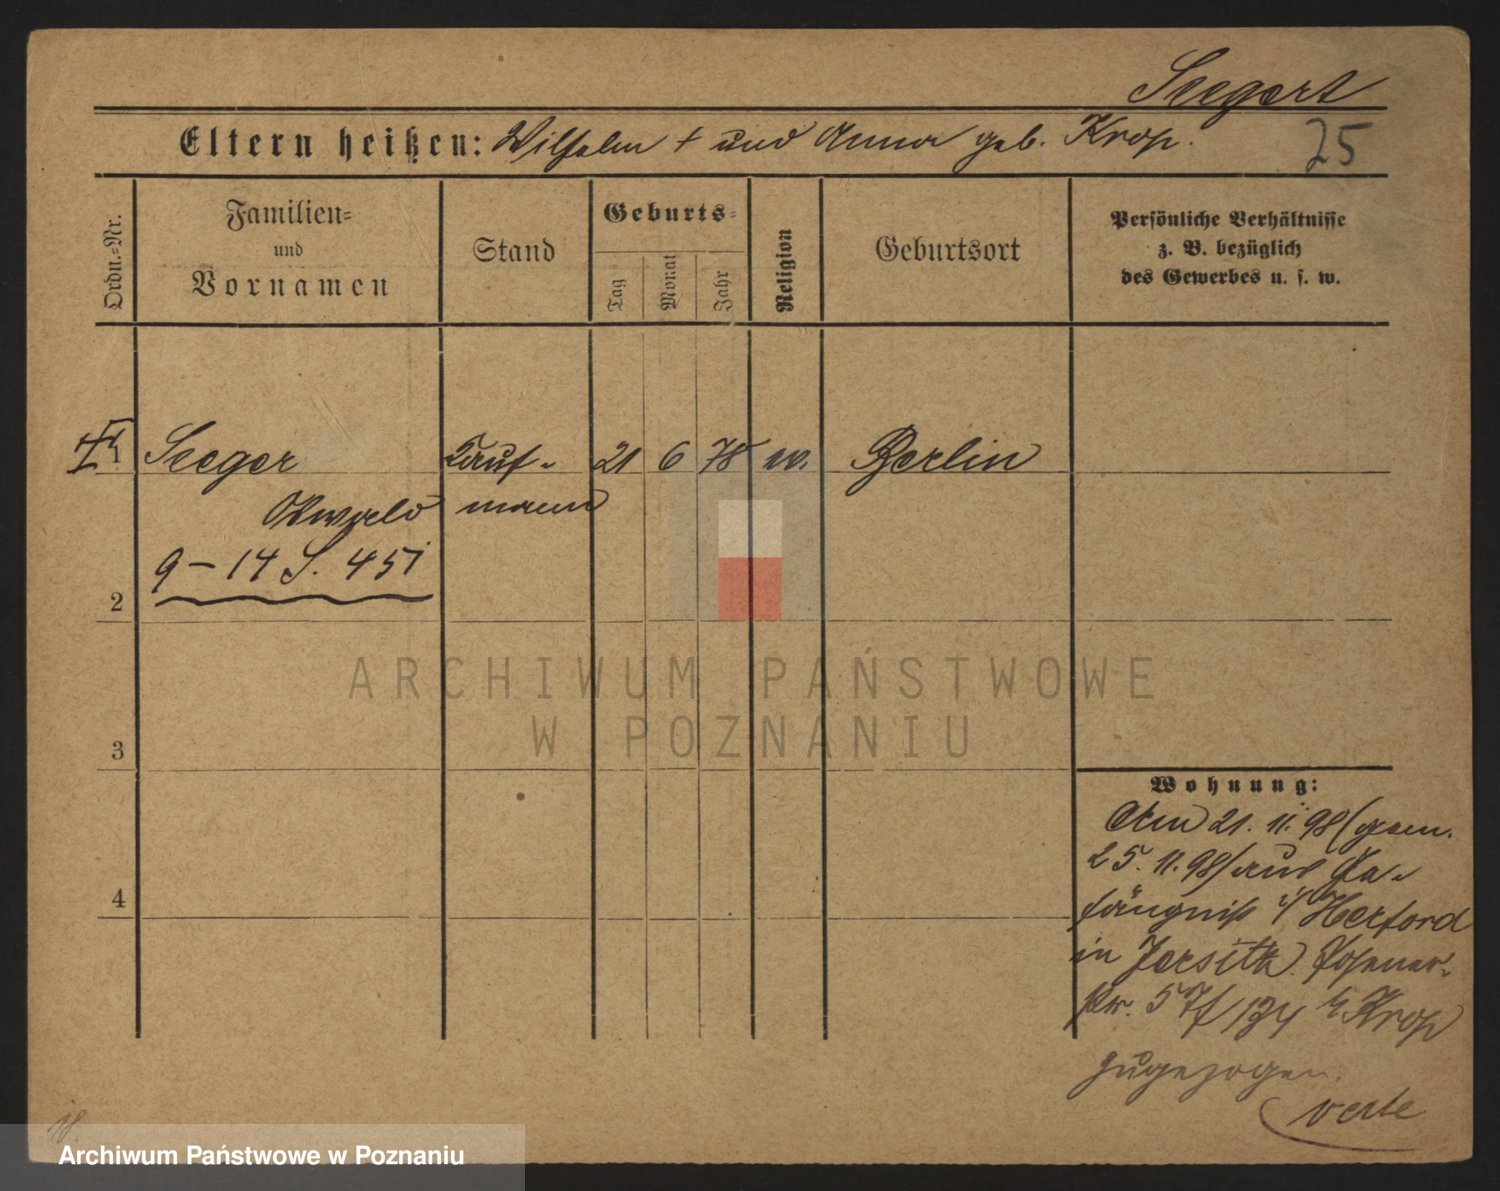 Seegert
Eltern heißen: Wilhelm † und Anna geb. Krop.
25
Ordn.-Nr.
Familien-
und
Vornamen
Stand
Geburts-
Tag
Monat
Jahr
Religion
Geburtsort
Persönliche Verhältnisse
z. B. bezüglich
des Gewerbes u. s. w.
1 Seeger Kauf- 21 6 78 Berlin
mann
9–14 S. 451
2
3
4
ARCHIWUM PAŃSTWOWE
W POZNANIU
Wohnung:
Am 21.11.98 (gem.
25.11.98) aus Ge-
fängniß Herford
in Jersitz Posener-
str. 57 Krop
zugezogen.
verte
18.
Archiwum Państwowe w Poznaniu